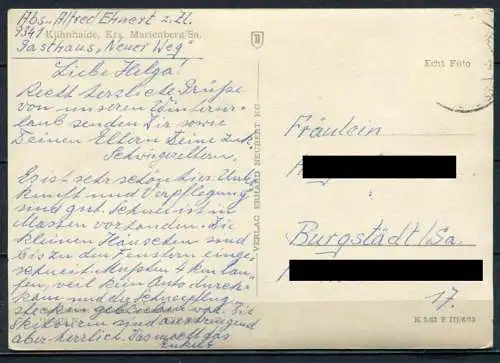 Abs. Alfred Ehnert z. Zt.
9341 Kühnhaide, Krs. Marienberg/Sa.
Gasthaus „Neuer Weg"
Liebe Helga!
Recht herzliche Grüße
von unserem Winterur-
laub senden Dir sowie
Deinen Eltern Deine zuk.
Schwiegereltern.
Es ist sehr schön hier. Unter-
kunft und Verpflegung
sind gut. Schnee ist in
Massen vorhanden. Die
kleinen Häuschen sind
bis zu den Fenstern einge-
schneit. Mußten 4 km lau-
fen, weil kein Auto durch-
kam und die Schneepflug
stecken geblieben war. Die
Skitouren sind anstrengend
aber herrlich. Das macht das
VERLAG ERHARD NEUBERT KG
Echt Foto
Fräulein
Burgstädt/Sa.
17.
K 3/63